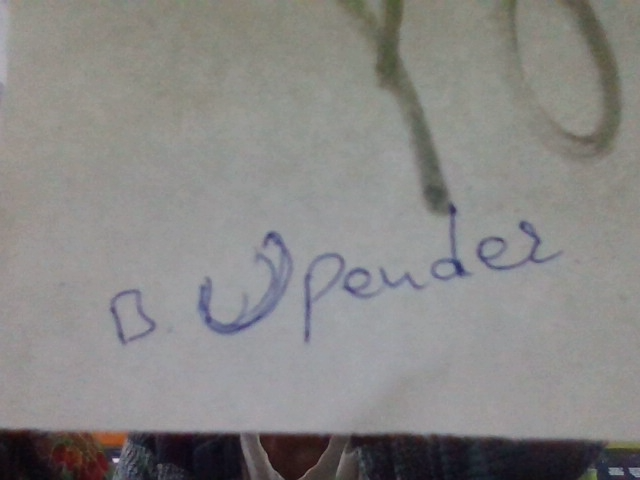 B. Upender